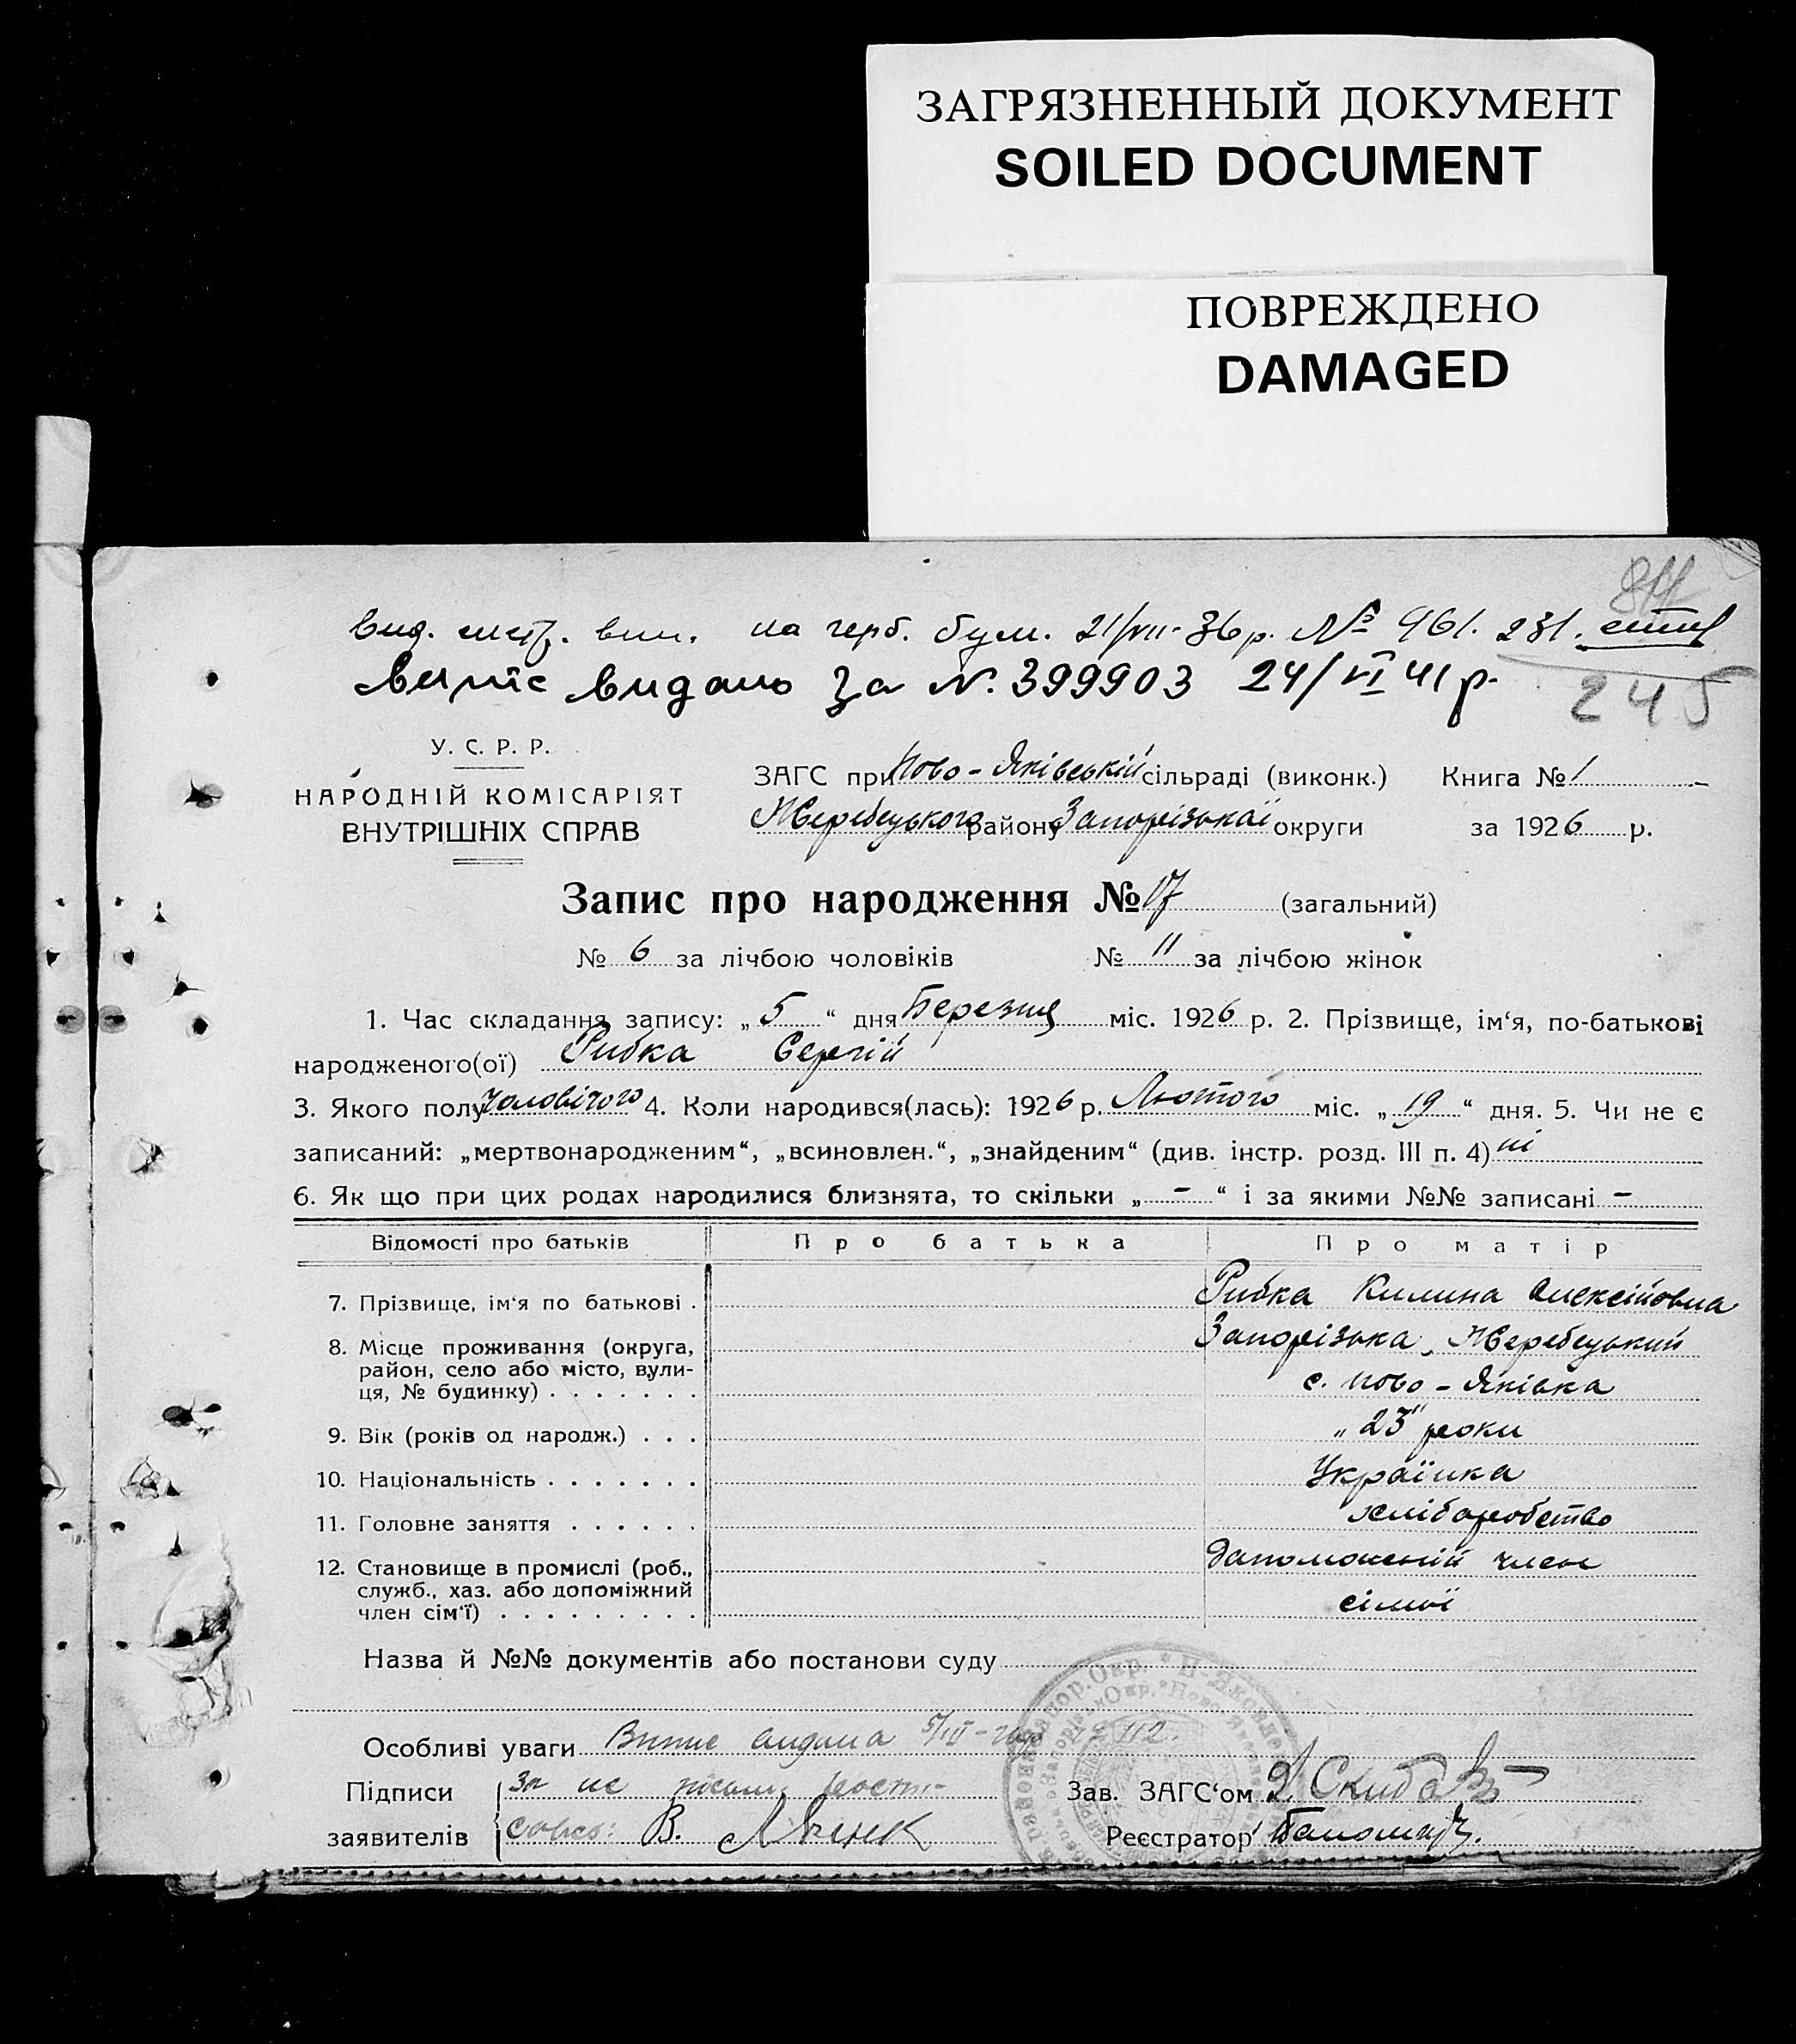 ЗАГРЯЗНЕННЫЙ ДОКУМЕНТ
SOILED DOCUMENT
ПОВРЕЖДЕНО
DAMAGED
вид. вип. на герб. бум. 21/VII-36 р. № 961. 231.
Випис видано за N. 399903 24/VI 41 р.
245
У. С. Р. Р.
НАРОДНІЙ КОМІСАРІЯТ
ВНУТРІШНІХ СПРАВ
ЗАГС при Ново-Яківській сільраді (виконк.) Книга № 1
Жеребецького району Запорізької округи за 1926 р.
Запис про народження № 17 (загальний)
№ 6 за лічбою чоловіків № 11 за лічбою жінок
1. Час складання запису: „5“ дня Березня міс. 1926 р. 2. Прізвище, ім‘я, по-батькові
народженого(ої) Рибка Сергій
3. Якого полу чоловічого 4. Коли народився(лась): 1926 р. Лютого міс. „19“ дня. 5. Чи не є
записаний: „мертвонародженим“, „всиновлен.“, „знайденим“ (див. інстр. розд. III п. 4) ні
6. Як що при цих родах народилися близнята, то скільки „-“ і за якими №№ записані -
Відомості про батьків Про батька Про матір
7. Прізвище, ім‘я по батькові . Рибка Килина Олексіїовна
8. Місце проживання (округа, Запорізька, Жеребецький
район, село або місто, вули-
ця, № будинку) . . . . . . . с. Ново-Яківка
9. Вік (років од народж.) . . . „23" роки
10. Національність . . . . . . . Українка
11. Головне заняття . . . . . . хліборобство
12. Становище в промислі (роб., допоможній член
служб., хаз. або допоміжний
член сім‘ї) . . . . . . . . . сімї
Назва й №№ документів або постанови суду
Особливі уваги Випис видана 5/III-26р № 112.
Підписи За не Зав. ЗАГС‘ом Скиба
заявителів В. Реєстратор